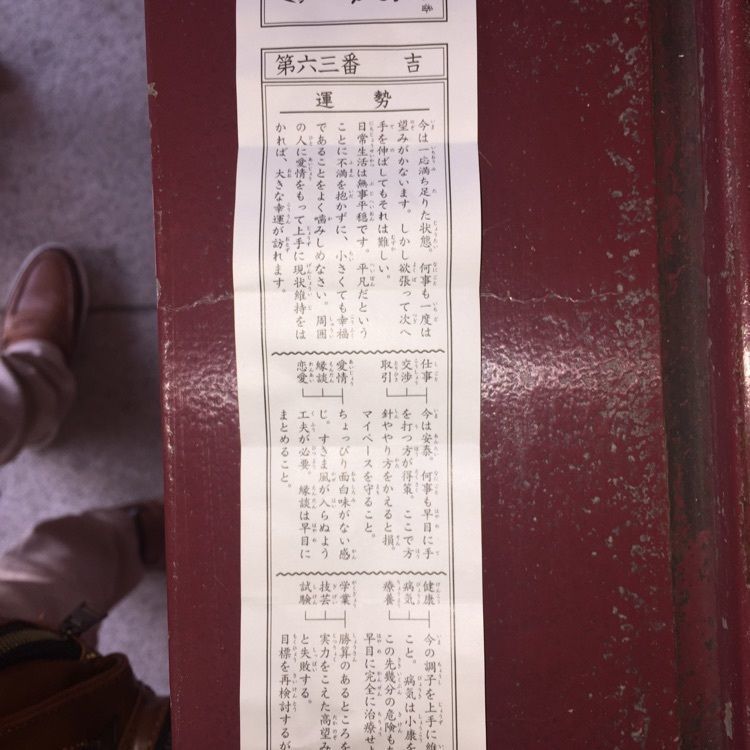 第六三番 吉
運勢
今は一応満ち足りた状態。何事も一度は
望みがかないます。しかし欲張って次へ
手を伸ばしてもそれは難しい。
日常生活は無事平穏です。平凡だという
ことに不満を抱かずに、小さくても幸福
であることをよく噛みしめなさい。周囲
の人に愛情をもって上手に現状維持をは
かれば、大きな幸運が訪れます。
仕事
交渉
取引
今は安泰。何事も早目に手
を打つ方が得策。ここで方
針ややり方をかえると損。
マイペースを守ること。
愛情
縁談
恋愛
ちょっぴり面白味がない感
じ。すきま風が入らぬよう
工夫が必要。縁談は早目に
まとめること。
健康
病気
療養
今の調子を上手に維
こと。病気は小康を
この先幾分の危険も
早目に完全に治療せ
学業
技芸
試験
勝算のあるところを
実力をこえた高望み
と失敗する。
目標を再検討するが